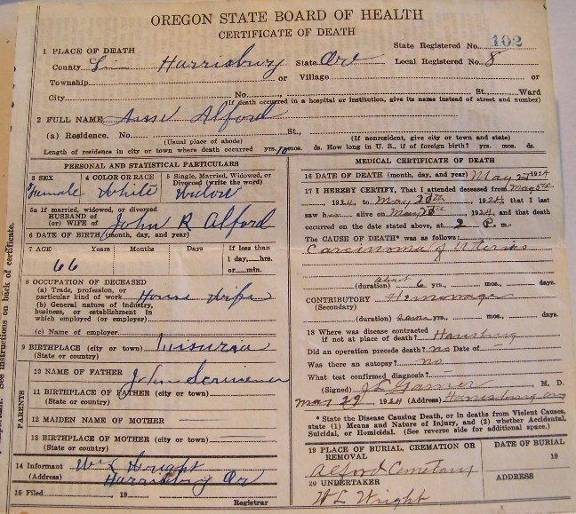 OREGON STATE BOARD OF HEALTH
CERTIFICATE OF DEATH
1 PLACE OF DEATH
State Registered No. 102
County Harrisburg State Ore Local Registered No. 8
Township or Village or
City No. St., Ward
(If death occurred in a hospital or institution, give its name instead of street and number)
2 FULL NAME Alford
(a) Residence. No. St.,
(Usual place of abode) (If nonresident, give city or town and state)
Length of residence in city or town where death occurred yrs. mos. ds. How long in U. S., if of foreign birth? yrs. mos. ds.
PERSONAL AND STATISTICAL PARTICULARS
3 SEX 4 COLOR OR RACE 5 Single, Married, Widowed, or Divorced (write the word)
Female White Widow
5a If married, widowed, or divorced
HUSBAND of
(or) WIFE of John R Alford
6 DATE OF BIRTH (month, day, and year)
7 AGE Years Months Days If less than
1 day,....hrs.
or....min.
66
8 OCCUPATION OF DECEASED
(a) Trade, profession, or
particular kind of work House Wife
(b) General nature of industry,
business, or establishment in
which employed (or employer)
(c) Name of employer
9 BIRTHPLACE (city or town) Missouri
(State or country)
PARENTS
10 NAME OF FATHER John
11 BIRTHPLACE OF FATHER (city or town)
(State or country)
12 MAIDEN NAME OF MOTHER
13 BIRTHPLACE OF MOTHER (city or town)
(State or country)
14 Informant W L Wright
(Address) Harrisburg Or
15 Filed 19 Registrar
MEDICAL CERTIFICATE OF DEATH
16 DATE OF DEATH (month, day, and year) May 1924
17 I HEREBY CERTIFY, That I attended deceased from May
1924 to May 28th, 1924, that I last
saw h alive on May 28th 1924 and that death
occurred on the date stated above, at 2 P. m.
The CAUSE OF DEATH* was as follows:
Carcinoma of Uterus
about
(duration) 6 yrs. mos. ds.
CONTRIBUTORY Hemorrage
(Secondary)
(duration) yrs. mos. ds.
18 Where was disease contracted
if not at place of death? Harrisburg
Did an operation precede death? no Date of
Was there an autopsy? no
What test confirmed diagnosis?
(Signed) M. D.
May 29 1924 (Address) Harrisburg Org
* State the Disease Causing Death, or in deaths from Violent Causes,
state (1) Means and Nature of Injury, and (2) whether Accidental,
Suicidal, or Homicidal. (See reverse side for additional space.)
19 PLACE OF BURIAL, CREMATION OR REMOVAL DATE OF BURIAL
Alford Cemetary 19
20 UNDERTAKER ADDRESS
W L Wright
See instructions on back of certificate.